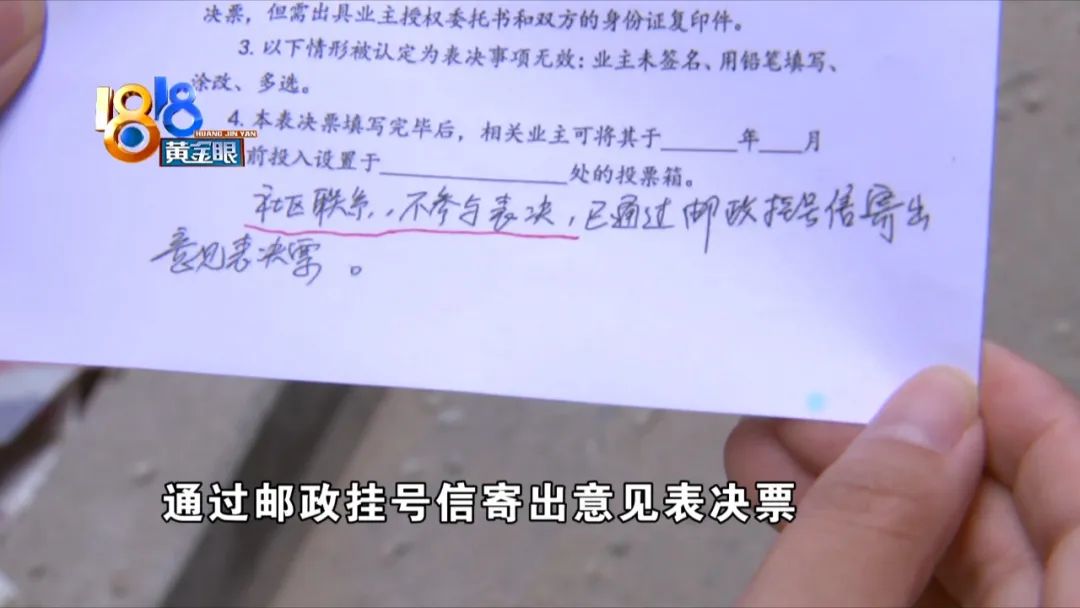 决票，但需出具业主授权委托书和双方的身份证复印件。
3. 以下情形被认定为表决事项无效：业主未签名、用铅笔填写、
涂改、多选。
4. 本表决票填写完毕后，相关业主可将其于______年___月
前投入设置于______________处的投票箱。
社区联系，不参与表决，已通过邮政挂号信寄出
意见表决票。
1818
HUANG JIN YAN
黄金眼
通过邮政挂号信寄出意见表决票